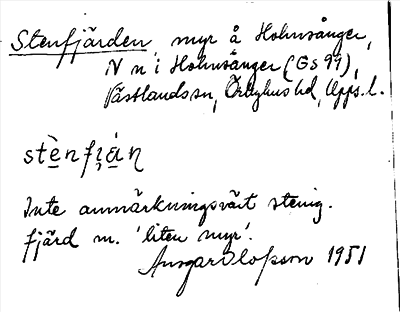 Stenfjärden, myr å Holmsånger,
N n i Holmsånger (Gs 99),
Västlands sn, Örbyhus hd, Upps. l.
stènfjä́ṇ
Inte anmärkningsvärt stenig.
fjärd m. 'liten myr'.
Ansgar Olofsson 1951